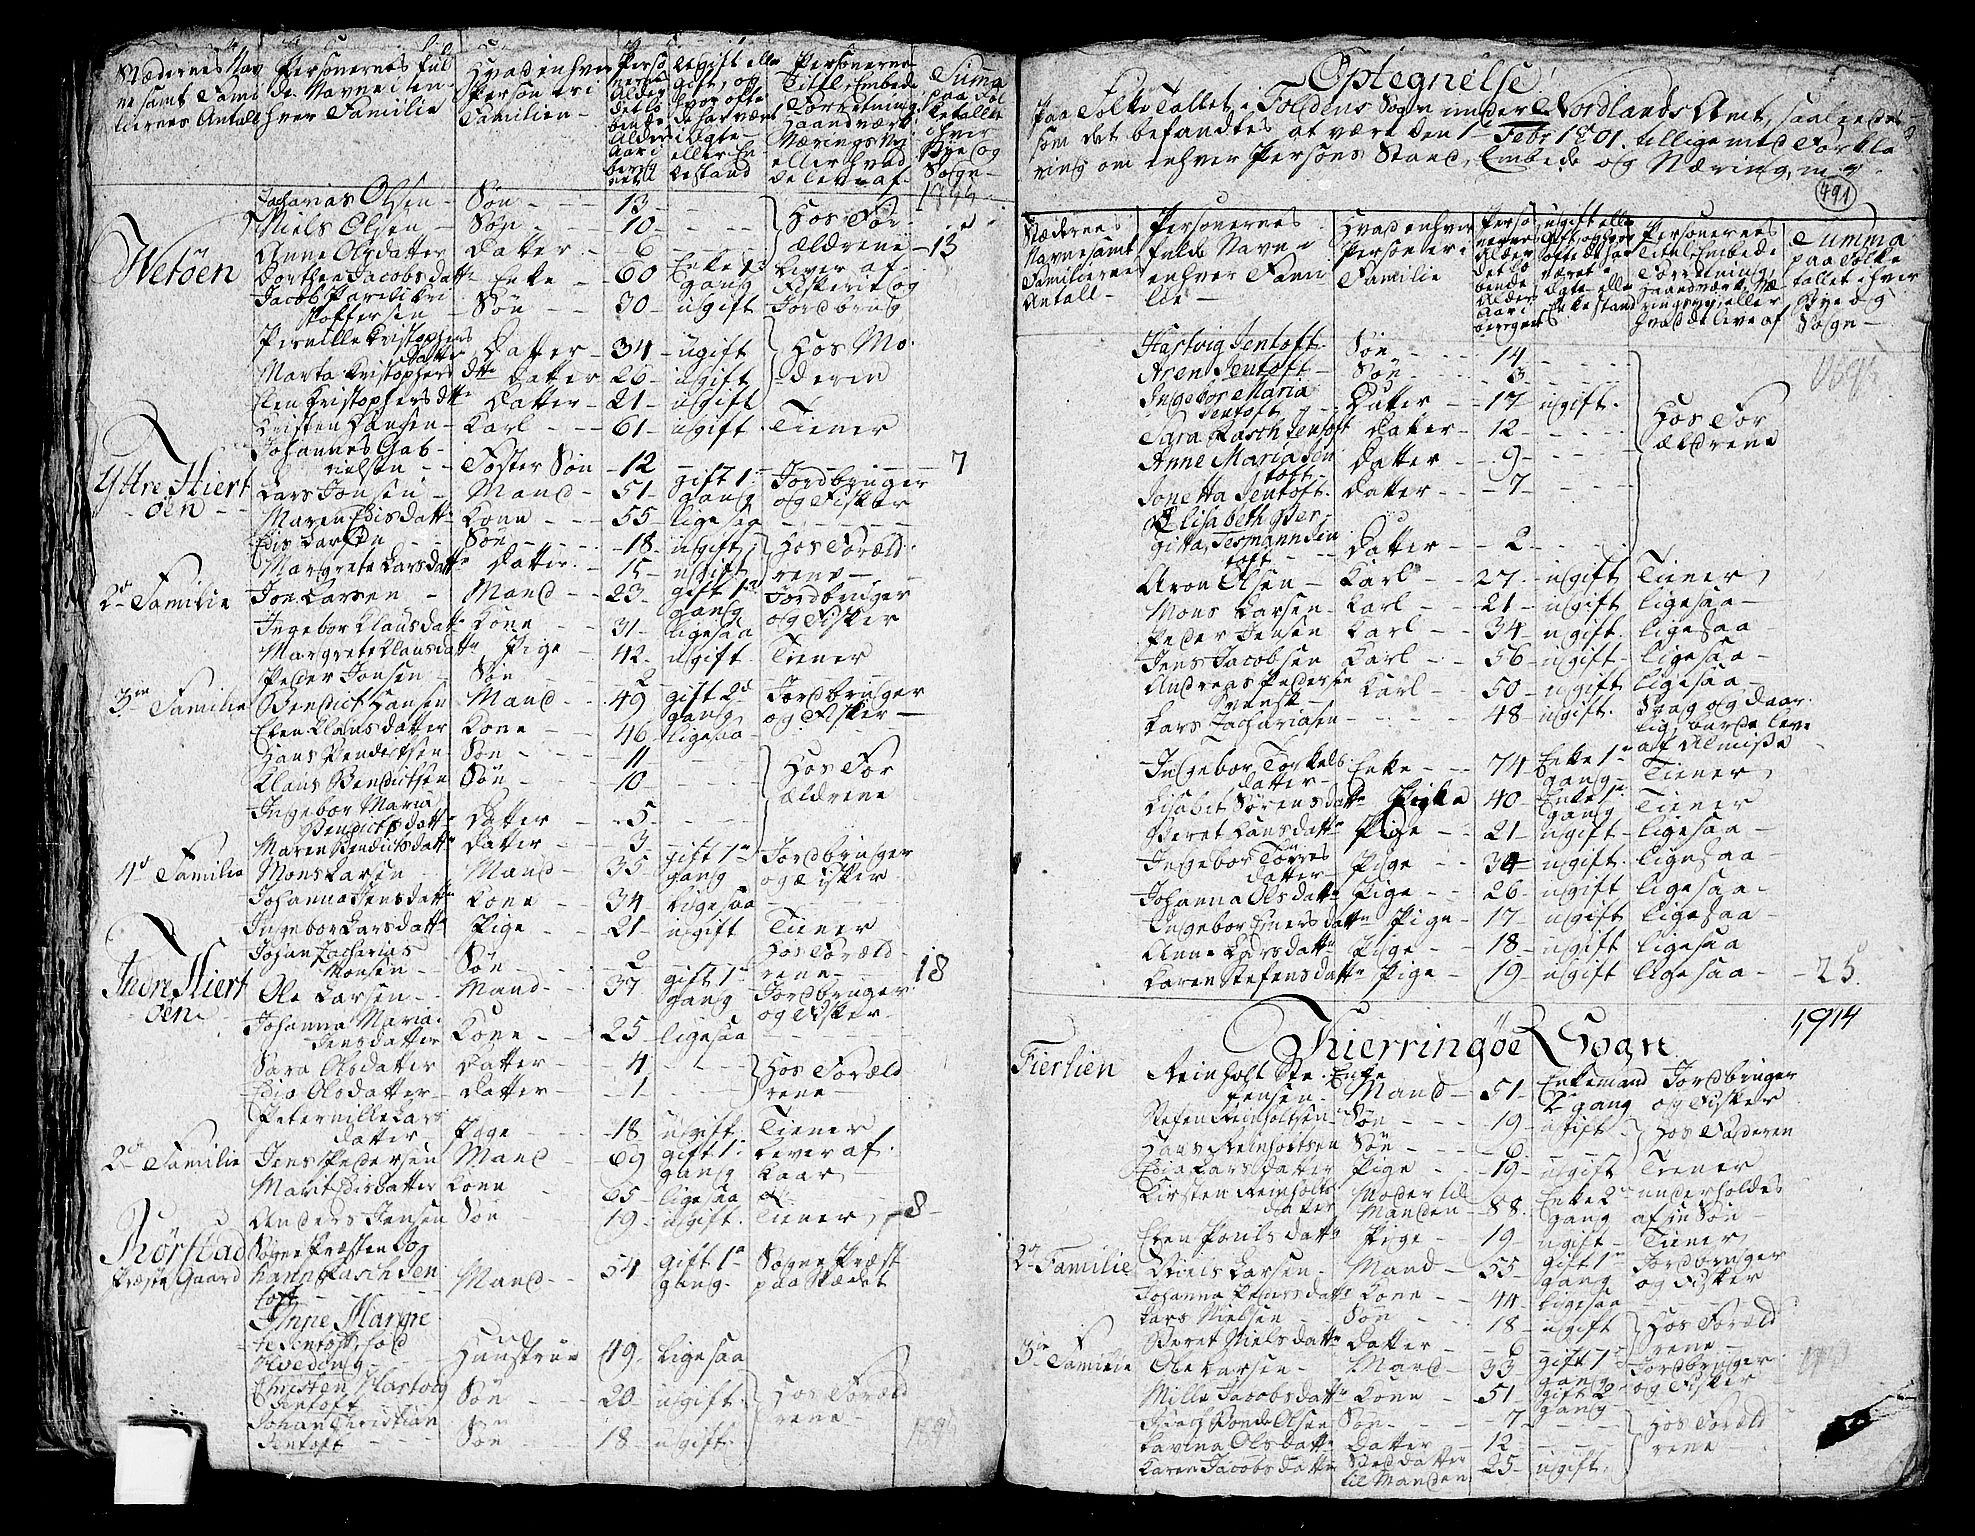 Stædernes Nav
ne samt Fami
liernes Antall
Personernes ful
de Navne i en
hver Familie
Hvad enhver
Person er i
Familien
Perso
nernes
Alder
det lo
bende
Alder
Aar i
bereg
net
Ugift eller
gift, og
hvor ofte
de har vært
i Ægte
eller En
kestand
Personernes
Titel, Embede
Forretning
Haandværk
Nærings Vei
eller hvad
de leve af
Summa
paa Fol
ketallet
i hver
Bye og
Sogn
Zacharias Olsen - Søn - 13
Niels Olsen - Søn - 10 - Hos For
Anne Olsdatter Datter - 6 - ældrene - 13
Wetöen Dorthea Jacobs datter Enke - 60 Enke 1 gang Lever af Fiskerie og
Jacob Parelikri
stoffersen - Søn - 30 - ugift Jordbrug
Pernille Kristophers
datter Datter - 34 - ugift Hos Mo
Marta Kristophers dtr Datter 26 - ugift deren
Elen Kristophers dtr Datter - 21 - ugift
Kristen Hansen - Karl - 61 - ugift Tiener
Johannes Gab
rielsen - Foster Søn - 12 - 7
Yttre Hiert
öen
Lars Jonsen - Mand - 51 - gift 1 gang Jordbruger og Fisker
Maren Edisdatter Kone - 55 - ligesaa
Edis Larsen - Søn - 18 - ugift Hos Foræld
Margrete Larsdatter Datter - 15 - ugift rene
2d Familie Jon Larsen - Mand - 23 - gift 1 gang Jordbruger og Fisker
Ingebor Klausdatter Kone - 31 - ligesaa
Margrete Klausdatter Pige - 42 - ugift Tiener
Peder Jonsen - Søn - 2
3die Familie Bendict Hansen Mand - 49 gift 2d gang Jordbruger og Fisker
Elen Klausdatter Kone - 46 - ligesaa
Hans Bendictsen Søn - 11 - Hos For
Klaus Bendictsen Søn - 10 - ældrene
Ingebor Maria
Bendictsdatter Datter - 5
Maren Bendictsdatter Datter - 3
4d Familie Mons Larsen - Mand - 35 gift 1 gang Jordbruger og Fisker
Johanna Jensdatter Kone - 34 - ligesaa
Ingebor Larsdatter Pige - 21 - ugift Tiener
Johan Zacharias
Monsen - Søn - 2 - Hos Foræld
rene - 18
Indre Hiert
öen
Ole Larsen - Mand - 37 gift 1 gang Jordbruger og Fisker
Johanna Maria
Jensdatter Kone - 25 - ligesaa
Sara Olsdatter Datter - 4 - Hos Foræld
Edis Olsdatter - Datter - 1 - rene
Peternille Lars
datter - Pige - 18 - ugift Tiener
2d Familie Jens Pedersen Mand - 69 gift 1 gang Lever af Kaar
Marit Edisdatter Kone - 65 - ligesaa
Anders Jensen Søn - 19 - ugift Tiener - 8
Thörstad
Præste Gaard
Sogne Præsten
Rasch Jen
toft - Mand - 54 gift 1 gang Sogne Præst
paa Stædet
Anne Margre
te Jentoft, fød
Hveding - Hunstrue 49 - ligesaa
Christen Hartvig
Jentoft - Søn - 20 - ugift Hos Foræld
Johan Christian
Jentoft - Søn - 18 - ugift rene
Optegnelse
paa Folke Tallet i Foldens Sogn under Nordlands Amt, saaledes
som det befandtes at vært den 1 Febr 1801 tilligemed Forkla
ring om enhver Persons Stand, Embede og Næring, m. v.
491
Stædernes
Navne samt
Familiernes
Antall
Personernes
fulde Navne i
enhver Fami
lie
Hvad enhver
Person er i
Familie
Personernes
Titel, Embede
Forretning
Haandværk, Næ
ringsvei, eller
hvad de leve af
Summa
paa Folke
tallet i hver
Bye og
Sogn
Hartvig Jentoft - Søn - 14
Aren Jentoft - Søn - 3
Ingebor Maria
Jentoft - Datter - 17 ugift Hos For
Sara Rasch Jentoft Datter - 12 - ældrene
Anne Maria Jen
toft - Datter - 9
Jonetta Jentoft - Datter - 7
Elisabeth Ber
gitta Tesmann Jen
toft - Datter - 2
Aron Olsen - Karl - 27 - ugift Tiener
Mons Larsen - Karl - 21 - ugift ligesaa
Peder Jensen Karl - 34 - ugift ligesaa
Jens Jacobsen Karl - 56 - ugift ligesaa
Andreas Pedersen
Svensk - Karl - 50 - ugift ligesaa
Lars Zachariasen - 48 - ugift Svag og daar
lig, burde leve
af Almisse
Ingebor Torkels
datter - Enke - 74 Enke 1 gang Tiener
Lisabet Sörensdatter Pige 40 Enke 1 gang Tiener
Beret Hansdatter Pige - 21 - ugift ligesaa
Ingebor Törres
datter Pige - 34 - ugift ligesaa
Johanna Olsdatter Pige - 26 - ugift ligesaa
Ingebor Emersdatter Pige - 17 - ugift ligesaa
Anne Larsdatter Pige - 18 - ugift ligesaa
Karen Stefensdatter Pige - 19 - ugift ligesaa - 25
1,914
Kierringöe Sogn
Fierlien Reinholt Ste
fensen - Mand - 51 - Enkemand 2 gang Jordbruger og Fisker
Stefen Reinholtsen Søn - 19 - ugift Hos Faderen
Hans Reinholtsen Søn - 6
Edia Larsdatter Pige - 19 - ugift Tiener
Kirsten Reinholts
datter Moder til
Manden - 88 Enke 2 gang underholdes
af sin Søn
Elen Poulsdatter Pige - 19 - ugift Tiener
2d Familie Niels Larsen - Mand - 55 gift 1 gang Jordbruger og Fisker
Johanna Pedersdatter Kone - 44 - ligesaa
Lars Nielsen - Søn - 18 - ugift Hos Foræld
Beret Nielsdatter Datter - 6 - rene
3die Familie Ole Larsen - Mand - 33 gift 1 gang Jordbruger og Fisker
Mille Jacobsdatter Kone - 51 gift 2 gang
Olsen Søn - 7 - Hos Foræld
Lavina Olsdatter Datter - 12 - rene
Karen Jacobsdatter Steddatter
til Manden - 25 - ugift